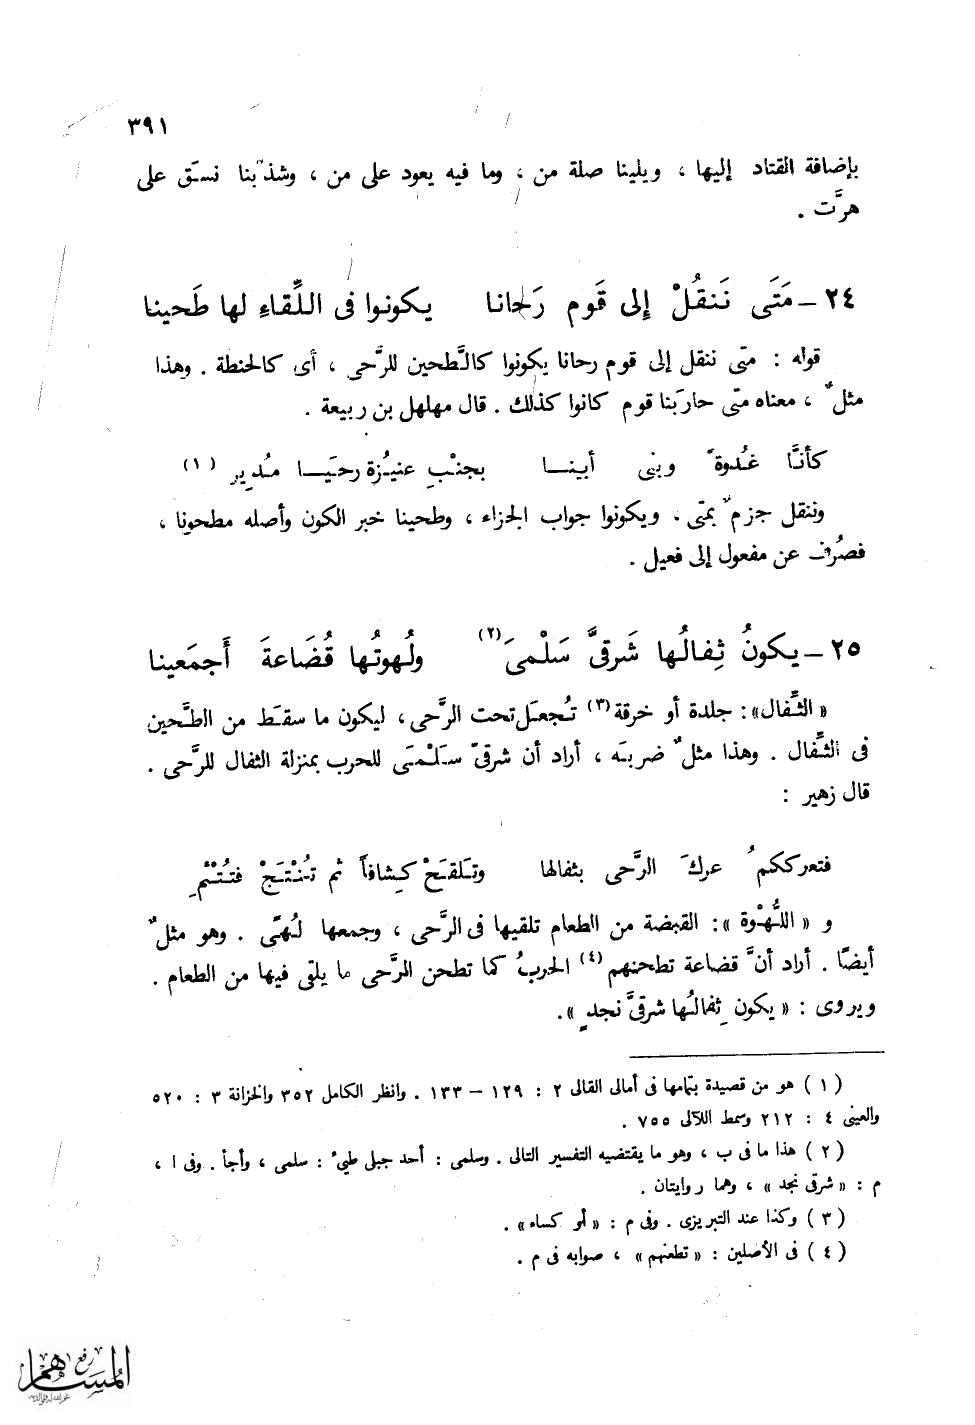 ٣٩١
بإضافة القتاد إليها ، ويلينا صلة من ، وما فيه يعود على من ، وشذّبنا نسَق على
هرَّت .
٢٤ – مَتَى نَنقُلْ إِلى قَومٍ رَحانا يكونوا فى اللِّقاءِ لها طَحينا
قوله : متى ننقل إلى قوم رحانا يكونوا كالطَّحين للرَّحى ، أى كالحنطة . وهذا
مثلٌ ، معناه متى حاربَنا قوم كانوا كذلك . قال مهلهل بن ربيعة .
كأنَّا غُدوةً وبنى أبينا بجنْبِ عنيُزة رحيَا مُديرِ (١)
وننقل جزمٌ بمتى . ويكونوا جواب الجزاء ، وطحينا خبر الكون وأصله مطحونا ،
فصُرف عن مفعول إلى فعيل .
٢٥ – يكونُ ثِفالُها شَرقىَّ سَلْمىَ (٢) ولُهوتُها قُضَاعةَ أَجمَعينا
« الثِّفال » : جلدة أو خرقة (٣) تُجعَل تحت الرَّحى ، ليكون ما سقَط من الطَّحين
فى الثِّفال . وهذا مثلٌ ضربَه ، أراد أن شرقىّ سَلْمَى للحرب بمنزلة الثفال للرَّحى .
قال زهير :
فتعرككمُ عركَ الرَّحى بثفالها وتَلقَحْ كِشافاً ثم تُنْتَجْ فتُتْئمِ
و « اللُّهْوة » : القبضة من الطعام تلقيها فى الرَّحى ، وجمعها لُهًى . وهو مثلٌ
أيضًا . أراد أنَّ قضاعة تطحنهم (٤) الحربُ كما تطحن الرَّحى ما يلقى فيها من الطعام .
ويروى : « يكون ثِفالُها شرقىَّ نجدٍ » .
(١) هو من قصيدة بتمامها فى أمالى القالى ٢ : ١٢٩ – ١٣٣ . وانظر الكامل ٣٥٢ والخزانة ٣ : ٥٢٠
والعينى ٤ : ٢١٢ وسمط اللآلى ٧٥٥ .
(٢) هذا ما فى ب ، وهو ما يقتضيه التفسير التالى . وسلمى : أحد جبلى طيىء : سلمى ، وأجأ . وفى ا ،
م : « شرقى نجد » ، وهما روايتان .
(٣) وكذا عند التبريزى . وفى م : « أو كساء » .
(٤) فى الأصلين : « تطعنهم » ، صوابه فى م .
رفع
المساهم